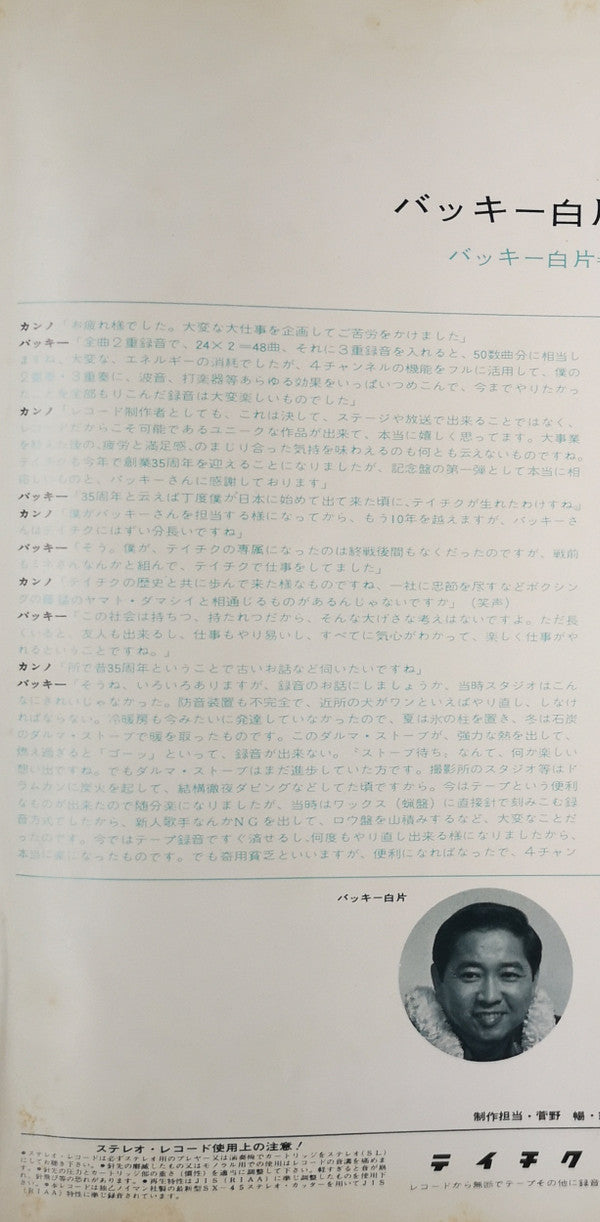 バッキー白片
バッキー白片
カンノ「お疲れ様でした。大変な大仕事を企画してご苦労をかけました」
バッキー「全曲2重録音で、24×2＝48曲、それに3重録音を入れると、50数曲分に相当し
ますね、大変な、エネルギーの消耗でしたが、4チャンネルの機能をフルに活用して、僕の
2重奏・3重奏に、波音、打楽器等あらゆる効果をいっぱいつめこんで、今までやりたかっ
た事を全部もりこんだ録音は大変楽しいものでした」
カンノ「レコード制作者としても、これは決して、ステージや放送で出来ることではなく、
レコードだからこそ可能であるユニークな作品が出来て、本当に嬉しく思ってます。大事業
を終えた後の、疲労と満足感、のまじり合った気持を味わえるのも何とも云えないものですね。
テイチクも今年で創業35周年を迎えることになりましたが、記念盤の第一弾として本当に相
応しいものと、バッキーさんに感謝しております」
バッキー「35周年と云えば丁度僕が日本に始めて出て来た頃に、テイチクが生れたわけすね」
カンノ「僕がバッキーさんを担当する様になってから、もう10年を越えますが、バッキーさ
んはテイチクにはずい分長いですね」
バッキー「そう。僕が、テイチクの専属になったのは終戦後間もなくだったのですが、戦前
もミネさんなんかと組んで、テイチクで仕事をしてました」
カンノ「テイチクの歴史と共に歩んで来た様なものですね、一社に忠節を尽すなどボクシン
グの藤猛のヤマト・ダマシイと相通じるものがあるんじゃないですか」（笑声）
バッキー「この社会は持ちつ、持たれつだから、そんな大げさな考えはないですよ。ただ長
くいると、友人も出来るし、仕事もやり易いし、すべてに気心がわかって、楽しく仕事がや
れるということですね。」
カンノ「所で昔35周年ということで古いお話など伺いたいですね」
バッキー「そうね、いろいろありますが、録音のお話にしましょうか、当時スタジオはこん
なにきれいじゃなかった。防音装置も不完全で、近所の犬がワンといえばやり直し、しなけ
ればならない。冷暖房も今みたいに発達していなかったので、夏は氷の柱を置き、冬は石炭
のダルマ・ストーブで暖を取ったものです。このダルマ・ストーブが、強力な熱を出して、
燃え過ぎると「ゴーッ」といって、録音が出来ない。〝ストーブ待ち〟なんて、何か楽しい
想い出ですね。でもダルマ・ストーブはまだ進歩していた方です。撮影所のスタジオ等はド
ラムカンに炭火を起して、結構徹夜ダビングなどしてた頃ですから。今はテープという便利
なものが出来たので随分楽になりましたが、当時はワックス（蝋盤）に直接針で刻みこむ録
音方式でしたから、新人歌手なんかNGを出して、ロウ盤を山積みするなど、大変なことだ
ったのです。今ではテープ録音ですぐ済せるし、何度もやり直し出来る様になりましたから、
本当に楽になったものです。でも奇用貧乏といいますが、便利になればなったで、4チャン
バッキー白片
制作担当・菅野 暢・
ステレオ・レコード使用上の注意！
●ステレオ・レコードは必ずステレオ用のプレヤー又は演奏機でカートリッジをステレオ(SL)
にしてお聴き下さい。●針先の磨滅したもの又はモノラル用での使用はレコードの音溝を痛めま
す。●針先の圧力とカートリッジ部の重さ(慣性)を適当に調整して下さい。軽すぎると音が割
れ、針飛び等の恐れがあります。●再生特性はJIS(RIAA)に準じ調整したものを使用下
さい。●本レコードは独乙ノイマン社製の最新型SX-45ステレオ・カッターを用いてJIS
(RIAA)特性に準じ録音されています。
テイチク
レコードから無断でテープその他に録音